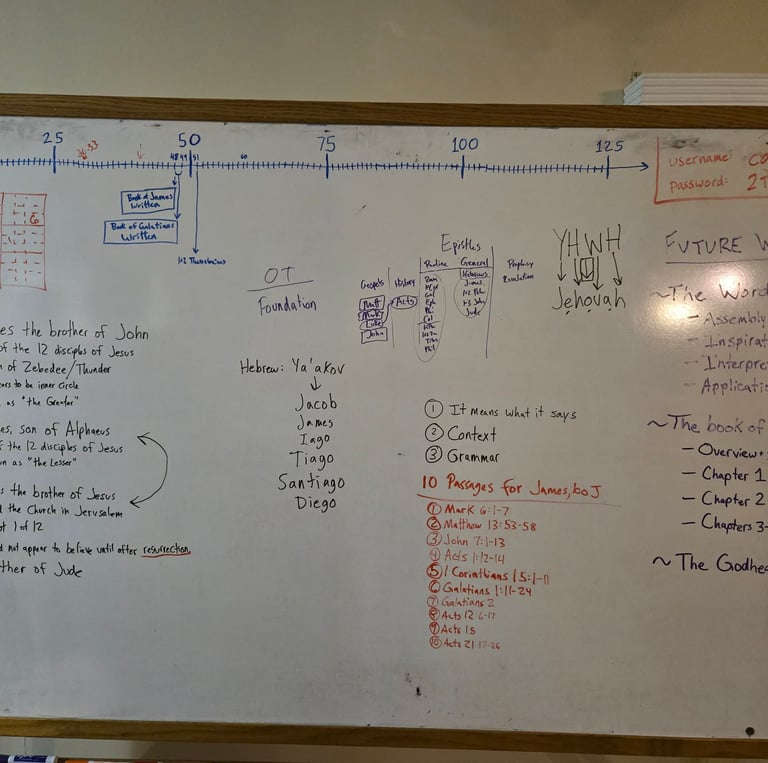 25 50 75 100 125
33
48 49 51 60
Book of James
Written
Book of Galatians
Written
1+2 Thessalonians
6
username: Co
password: 2T
OT
Foundation
Gospels
Matt
Mark
Luke
John
History
Acts
Epistles
Pauline General
Rom
Gal
Eph
Phi
Col
Titus
Hebrews
James
1+2 Peter
1-3 John
Jude
Prophecy
Revelation
YHWH
Jehovah
FUTURE W
~The Word
- Assembly
- Inspirat
- Interpre
- Applicatio
~The book of
- Overview +
- Chapter 1
- Chapter 2
- Chapters 3-
~ The Godhea
es the brother of John
of the 12 disciples of Jesus
n of Zebedee/Thunder
ears to be inner circle
as "the Greater"
es, son of Alphaeus
f the 12 disciples of Jesus
on as "the Lesser"
s the brother of Jesus
d the Church in Jerusalem
ot 1 of 12
d not appear to believe until after resurrection
ther of Jude
Hebrew: Ya'akov
Jacob
James
Iago
Tiago
Santiago
Diego
① It means what it says
② Context
③ Grammar
10 Passages for James, bo J
① Mark 6:1-7
② Matthew 13:53-58
③ John 7:1-13
④ Acts 1:12-14
⑤ 1 Corinthians 15:1-11
⑥ Galatians 1:11-24
⑦ Galatians 2
⑧ Acts 12 6-17
⑨ Acts 15
⑩ Acts 21 17-26